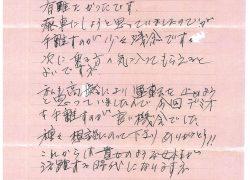 有難たかったです。
廃車にしようと思っていましたので
手離すのが少々残念です。
次に乗る方気に入ってもらえると
よいですが
私も高齢により運転を止めよう
と思っていましたんで今回デミオ
を手離すのが言い機会でした
種々相談にのって下さりありがとう!!
これからは貴女のような女性が
活躍する時代になりますネ